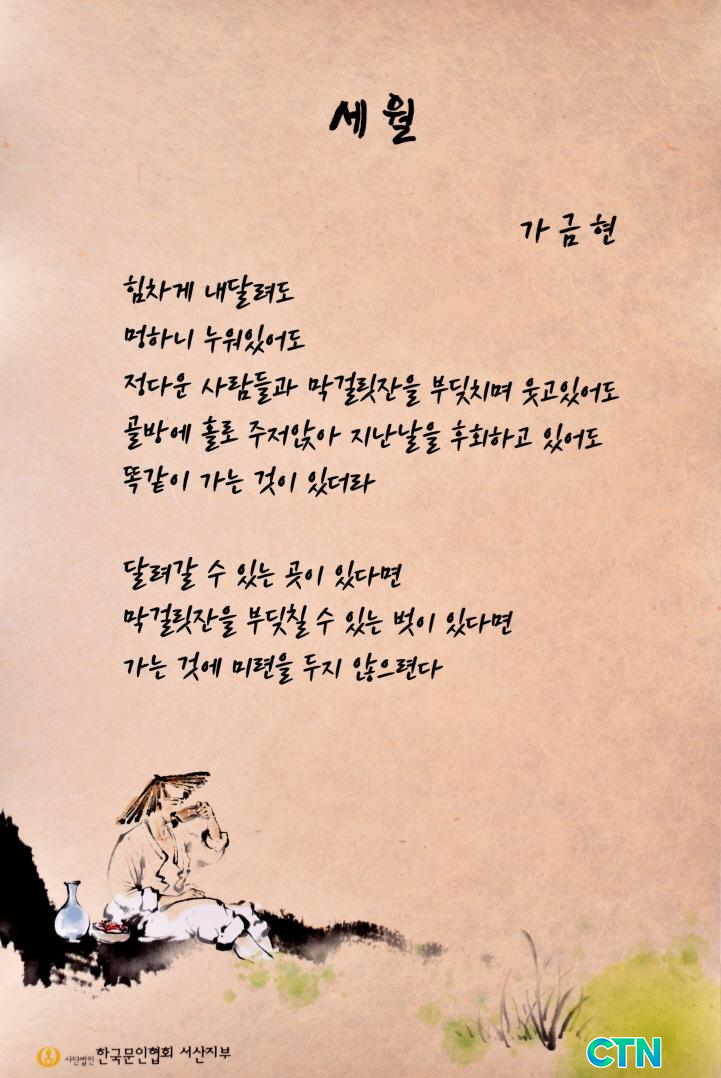 세월
가금현
힘차게 내달려도
멍하니 누워있어도
정다운 사람들과 막걸릿잔을 부딪치며 웃고있어도
골방에 홀로 주저앉아 지난날을 후회하고 있어도
똑같이 가는 것이 있더라
달려갈 수 있는 곳이 있다면
막걸릿잔을 부딪칠 수 있는 벗이 있다면
가는 것에 미련을 두지 않으련다
사단법인 한국문인협회 서산지부
CTN